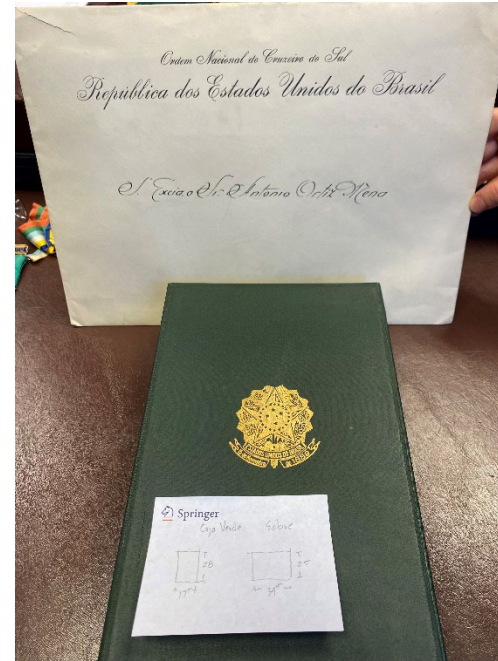 Ordem Nacional do Cruzeiro do Sul
República dos Estados Unidos do Brasil
S. Excia. o Sr. Antonio Ortiz Mena
ESTADOS UNIDOS DO BRASIL
Springer
Caja Verde Sobre
28 25